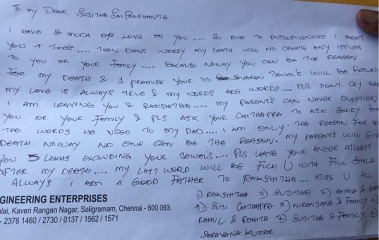 To my DEAR SUJITHA SAI PENDYANTHA
I HAVE SO MUCH OF LOVE ON YOU.... SO DUE TO POSSESSIVENESS I BEAT
YOU 4 TIMES.... THEN DON'T WORRY MY DEATH WILL NO CREATE ANY ISSUES
TO YOU OR YOUR FAMILY.... BECAUSE NOWAY YOU CAN BE THE REASON
FOR MY DEATH & I PROMISE YOUR JEWEL'S WILL BE RETURN
MY LOVE IS ALWAYS TRUE & MY WORDS ARE WORDS.... PLS DON'T CRY
I AM LEAVING YOU & RAKSHITHA.... MY PARENTS CAN NEVER QUESTION
YOU OR YOUR FAMILY & PLS ASK YOUR CHITHAPPA TO ASK SORRY FOR
THE WORDS HE USED TO MY DAD.... I AM ONLY THE REASON FOR
DEATH NOWAY AND ONE CAN BE THE REASON. MY PARENTS WILL GIVE
YOU 5 LAKHS EXCLUDING YOUR JEWELS.... PLS LEAVE YOUR ANGER ATLEAST
AFTER MY DEATH.... MY LAST WORD WILL BE U WITH FULL
ALWAYS I AM A GOOD FATHER TO RAKSHITHA... MISS U ALL
GINEERING ENTERPRISES
alai, Kaveri Rangan Nagar, Saligramam, Chennai - 600 093.
- 2376 1460 / 2730 / 0137 / 1562 / 1571
1) RAKSHITHA 2) SUJITHA 3)
4) SUSI CHITHAPPA 5) NIRANJANA & FAMILY
RAHUL & ROHITH SUJITHA & FAMILY
SARAVANA KUMAR